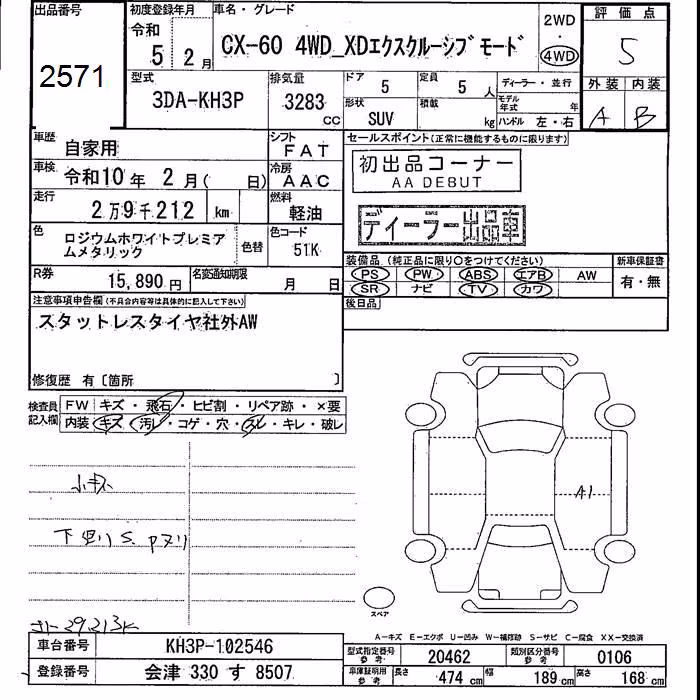 出品番号
2571
初度登録年月
令和
5 2月
車名・グレード
CX-60 4WD_XDエクスクルーシブモード
2WD
・
4WD
評価点
5
外装 内装
A B
型式
3DA-KH3P
排気量
3283
cc
ドア
5
定員
5 人
形状
SUV
積載
kg
ディーラー・並行
モデル年式 年
ハンドル 左・右
車歴
自家用
シフト
FAT
車検
令和10年 2月( 日)
冷房
AAC
走行
2万9千212 km
燃料
軽油
色
ロジウムホワイトプレミアムメタリック
色替
色コード
51K
R券
15,890円
名変通知期限
月 日
セールスポイント(正常に機能するものに限ります)
初出品コーナー
AA DEBUT
ディーラー出品車
装備品(純正品に限り○をつけてください)
PS PW ABS エアB AW
SR ナビ TV カワ
新車保証書
有・無
後日品
注意事項申告欄(不具合内容等は具体的に記入して下さい)
スタットレスタイヤ社外AW
修復歴 有〔箇所 〕
検査員記入欄
FW キズ・飛石・ヒビ割・リペア跡・×要
内装 キズ・汚レ・コゲ・穴・スレ・キレ・破レ
A1
スペア
29213K
A-キズ E-エクボ U-凹み W-補修跡 S-サビ C-腐食 XX-交換済
車台番号
KH3P-102546
登録番号
会津 330 す 8507
型式指定番号参考
20462
類別区分番号参考
0106
車庫証明用参考
長さ 474 cm
幅 189 cm
高さ 168 cm